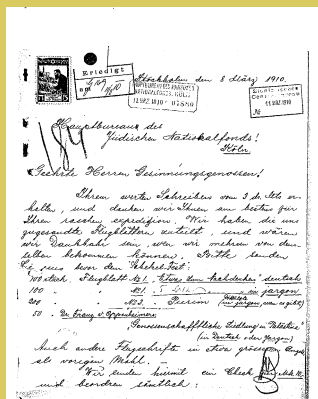 Erledigt
Stockholm den 8 März 1910.
HAUPTBUREAU DES JÜDISCHEN
NATIONALFONDS, KÖLN
12. MRZ. 1910
11 MRZ 1910
184
Hauptbureau des
Jüdischen Nationalfonds!
Köln
Geehrte Herren Gesinnungsgenossen!
Ihrem werten Schreiben vom 3 ds. Mts er-
halten, und danken wir Ihnen am bestens für
Ihren raschen expedition. Wir haben die uns
zugesandte Flugblättern verteilt, und wären
wir Dankbahr sein, wen wir mehrere von den-
selben bekommen können. Bitte senden
Sie uns vor dem Schekel-Fest:
100 stück Flugblatt № 1. "Etwas zum Nachdenken" deutsch
100 " " №1. in jargon
200 " " №23. Purim (in jargon, wen es gibt)
50 " Dr Franz Oppenheimer:
Genossenschaftliche Siedlung in Palästina
(in Deutsch oder Jargon)
Auch andere Flugschrifte in etwa grösser
als vorigen Mahl. -
Wir senden hiermit ein Check
und beordren sämtlich: